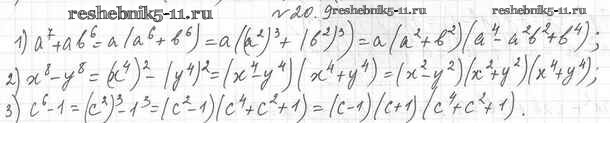 reshebnik5-11.ru
№20.9 reshebnik5-11.ru
1) a⁷+ab⁶=a(a⁶+b⁶)=a((a²)³+(b²)³)=a(a²+b²)(a⁴-a²b²+b⁴);
2) x⁸-y⁸=(x⁴)²-(y⁴)²=(x⁴-y⁴)(x⁴+y⁴)=(x²-y²)(x²+y²)(x⁴+y⁴);
3) c⁶-1=(c²)³-1³=(c²-1)(c⁴+c²+1)=(c-1)(c+1)(c⁴+c²+1).